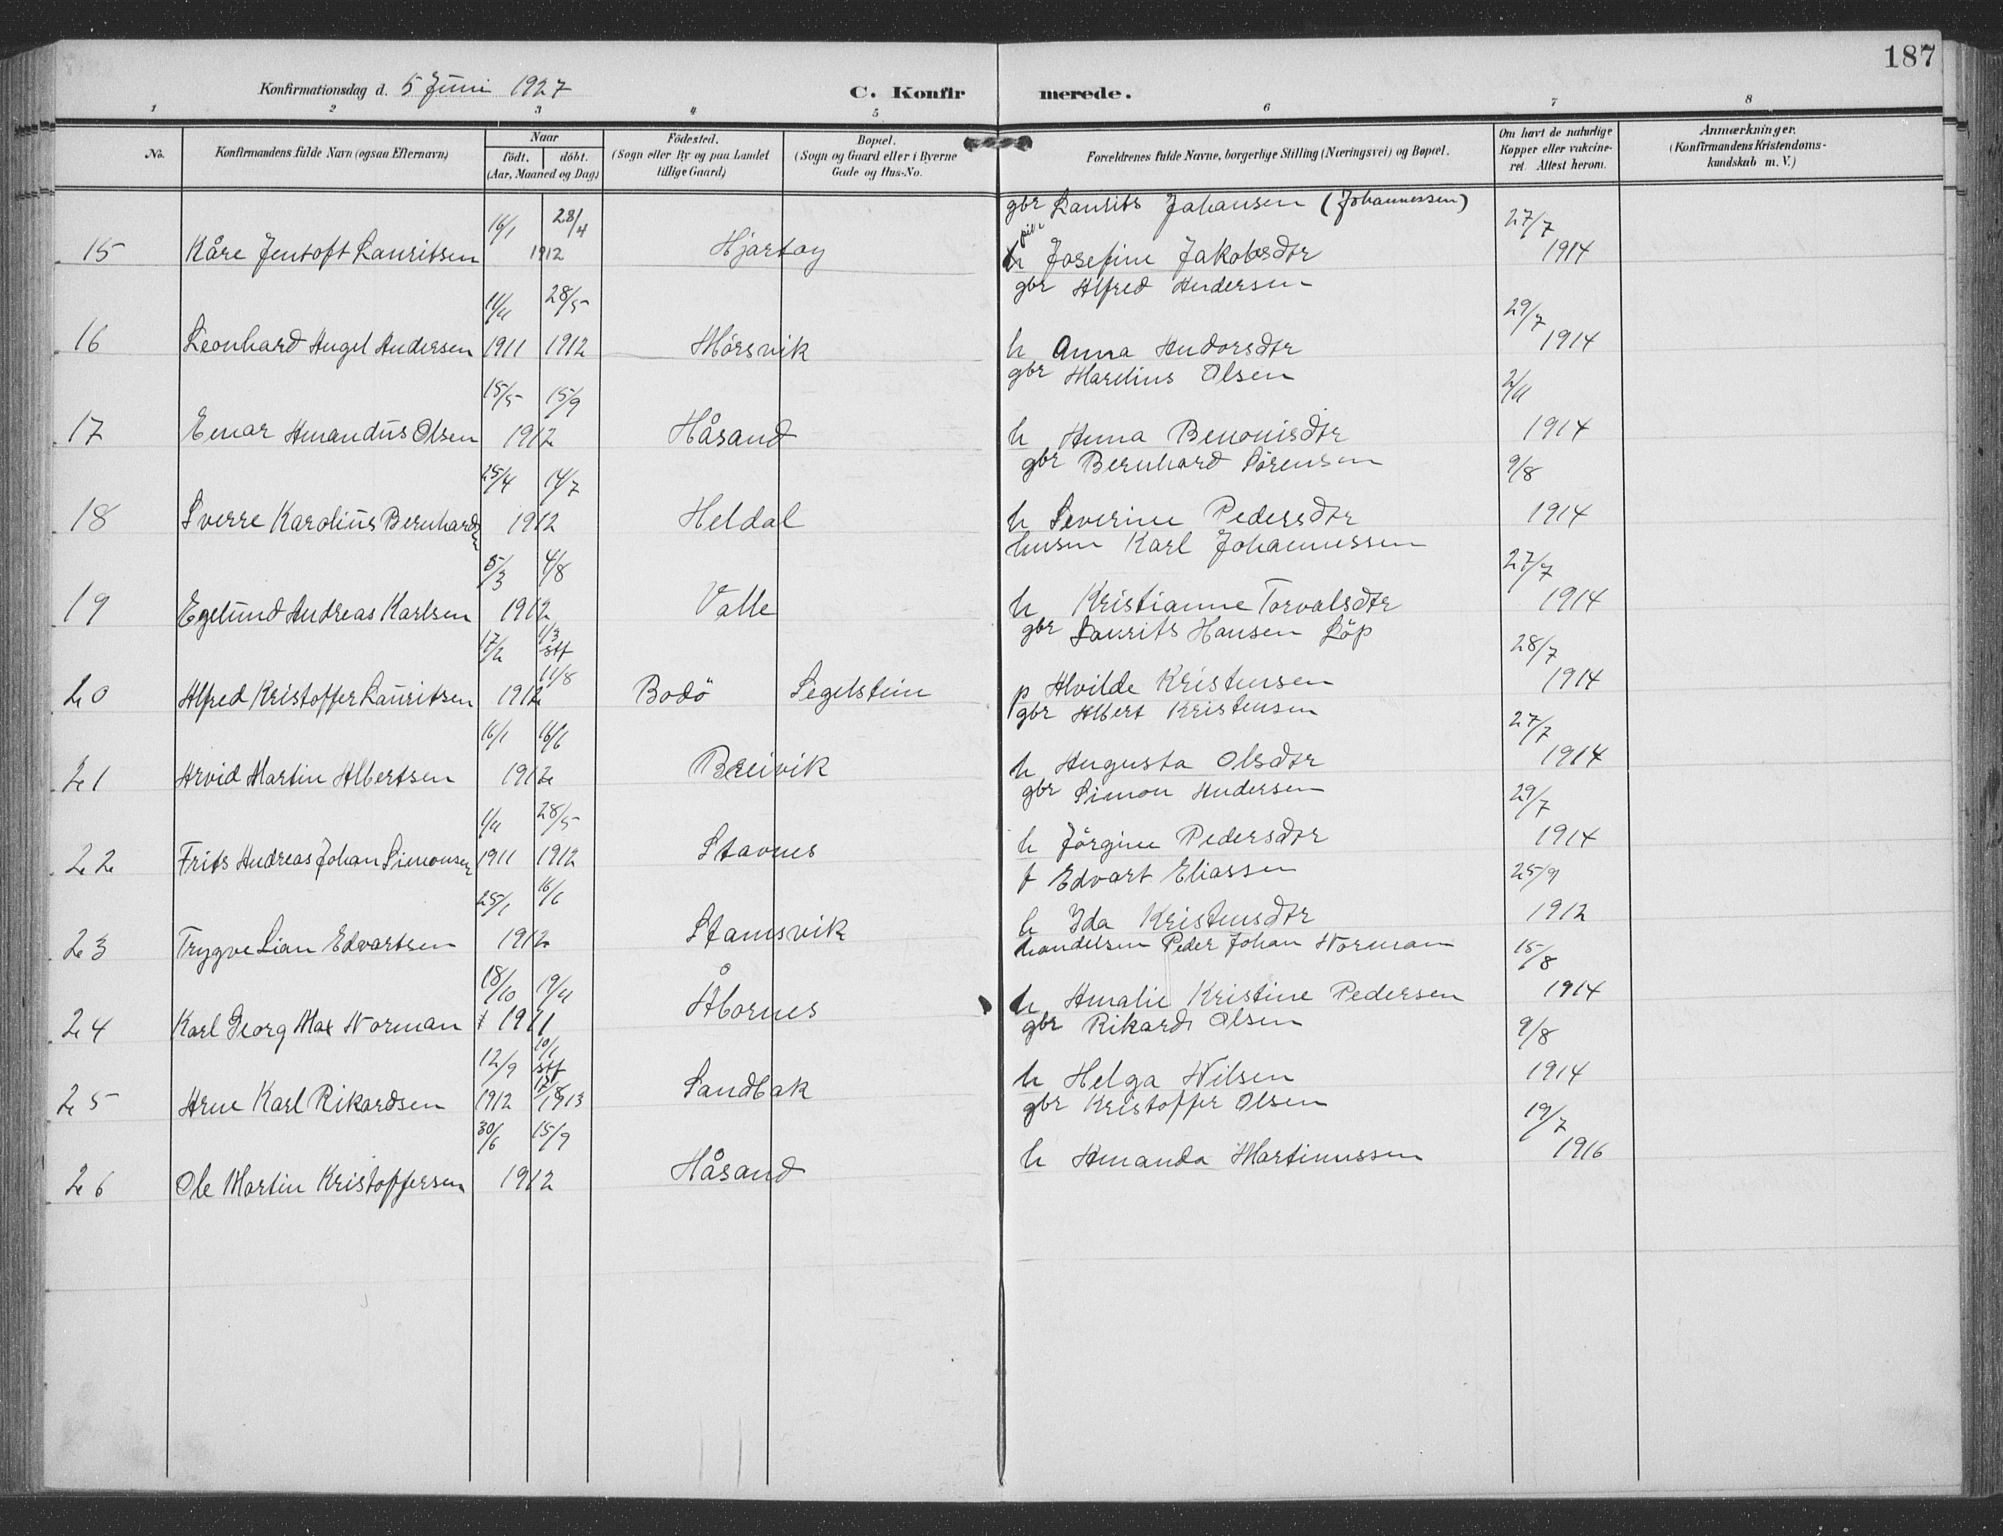 187
Konfirmationsdag d. 5 Juni 1927 C. Konfirmerede.
1 2 3 4 5 6 7 8
No. Konfirmandens fulde Navn (ogsaa Efternavn) Naar født. døbt. (Aar, Maaned og Dag) Födested. (Sogn eller By og paa Landet tillige Gaard) Bopæl. (Sogn og Gaard eller i Byerne Gade og Hus-No. Forældrenes fulde Navne, borgerlige Stilling (Næringsvei) og Bopæl. Om havt de naturlige Kopper eller vaccineret. Attest herom. Anmærkninger. (Konfirmandens Kristendomskundskab m. V.)
gbr Laurits Johansen (Johannessen)
16/1 28/4 27/7
15 Kåre Jentoft Lauritsen 1912 Hjartøy Josefine Jakobsdtr 1914
gbr Alfred Andersen
11/11 28/5 29/7
16 Leonhard Angel Andersen 1911 1912 Mørsvik h Anna Andorsdtr 1914
gbr Marelius Olsen
15/5 15/9 2/11
17 Einar Amandus Olsen 1912 Håsand h Anna Benonisdtr 1914
gbr Bernhard Sørensen
25/4 14/7 9/8
18 Sverre Karolius Bernhardsen 1912 Heldal h Severine Pedersdtr 1914
husm Karl Johannessen
5/3 4/8 27/7
19 Egelund Andreas Karlsen 1912 Valle h Kristianne Torvalsdtr 1914
gbr Laurits Hansen Löp
17/2 1/3 stf 11/8 28/7
20 Alfred Kristoffer Lauritsen 1912 Bodö Segelstein p Alvilde Kristensen 1914
gbr Albert Kristensen
16/1 16/6 27/7
21 Arvid Martin Albertsen 1912 Breivik h Augusta Olsdtr 1914
gbr Simon Andersen
1/11 28/5 29/7
22 Frits Andreas Johan Simonsen 1911 1912 Stavnes h Jörgine Pedersdtr 1914
f Edvart Eliassen
25/1 16/6 25/9
23 Trygve Lian Edvartsen 1912 Stamsvik h Ida Kristensdtr 1912
handelsm Peder Johan Norman
18/10 19/11 15/8
24 Karl Georg Max Norman 1911 Åbornes h Amalie Kristine Pedersen 1914
gbr Rikard Olsen
12/9 10/1 stf 9/8
25 Arne Karl Rikardsen 1912 1913 Sandbak h Helga Nilsen 1914
gbr Kristoffer Olsen
30/6 15/9 19/7
26 Ole Martin Kristoffersen 1912 Håsand h Amanda Martinussen 1916